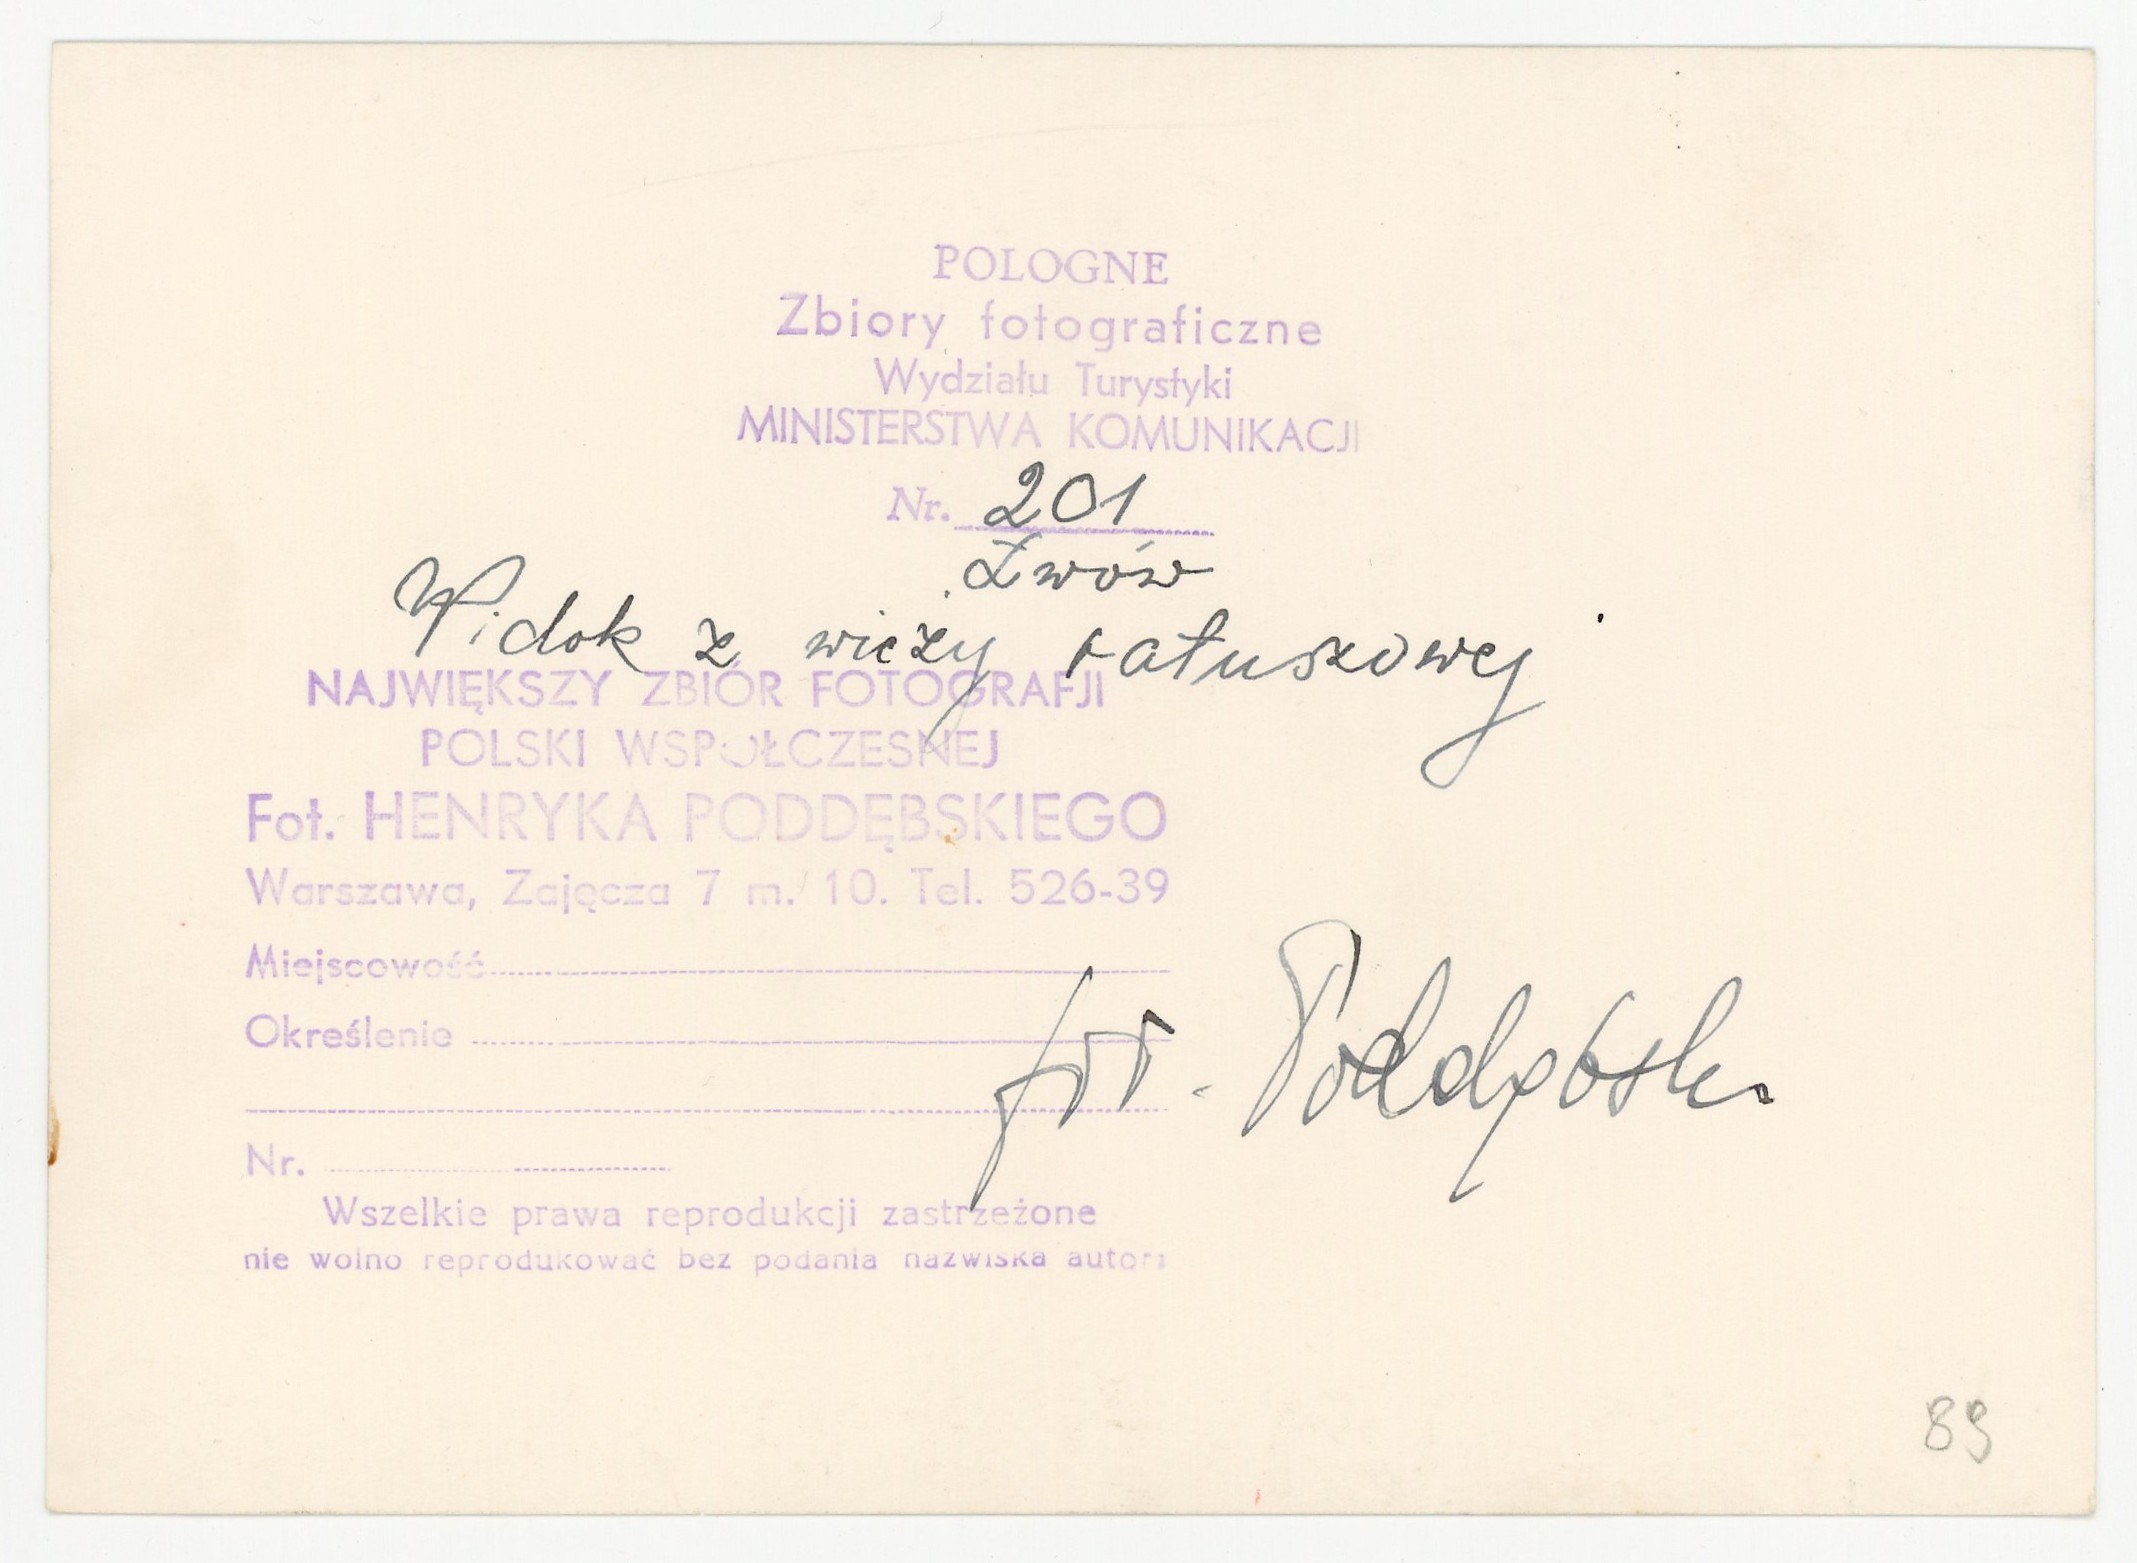 POLOGNE
Zbiory fotograficzne
Wydziału Turystyki
MINISTERSTWA KOMUNIKACJI
Nr. 201
Lwów
Widok z wieży ratuszowej
NAJWIĘKSZY ZBIÓR FOTOGRAFJI
POLSKI WSPÓŁCZESNEJ
Fot. HENRYKA PODDĘBSKIEGO
Warszawa, Zajęcza 7 m. 10. Tel. 526-39
Miejscowość
Określenie
fot. Poddębski
Nr.
Wszelkie prawa reprodukcji zastrzeżone
nie wolno reprodukować bez podania nazwiska autora
89